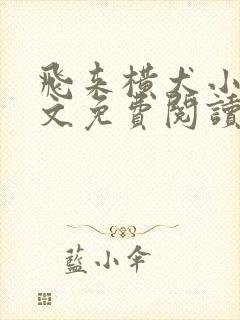 飛來橫犬小
文免費閱讀
藍小傘